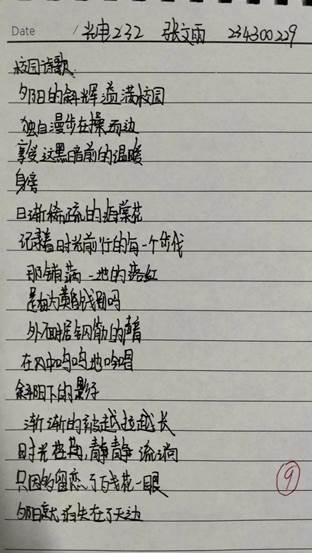 Date 光电232 张文雨 234300229
校园诗歌
夕阳的斜辉溢满校园
独自漫步在操场边
享受这黑暗前的温暖
身旁
日渐稀疏的海棠花
记录着时光前行的每一个步伐
那铺满一地的落红
是因为黄的残圈吗
外面锯钢筋的声音
在风中呜呜地吟唱
斜阳下的影子
渐渐的被越拉越长
时光在静静流淌
只因留恋了残花一眼
夕阳就消失在了天边
9